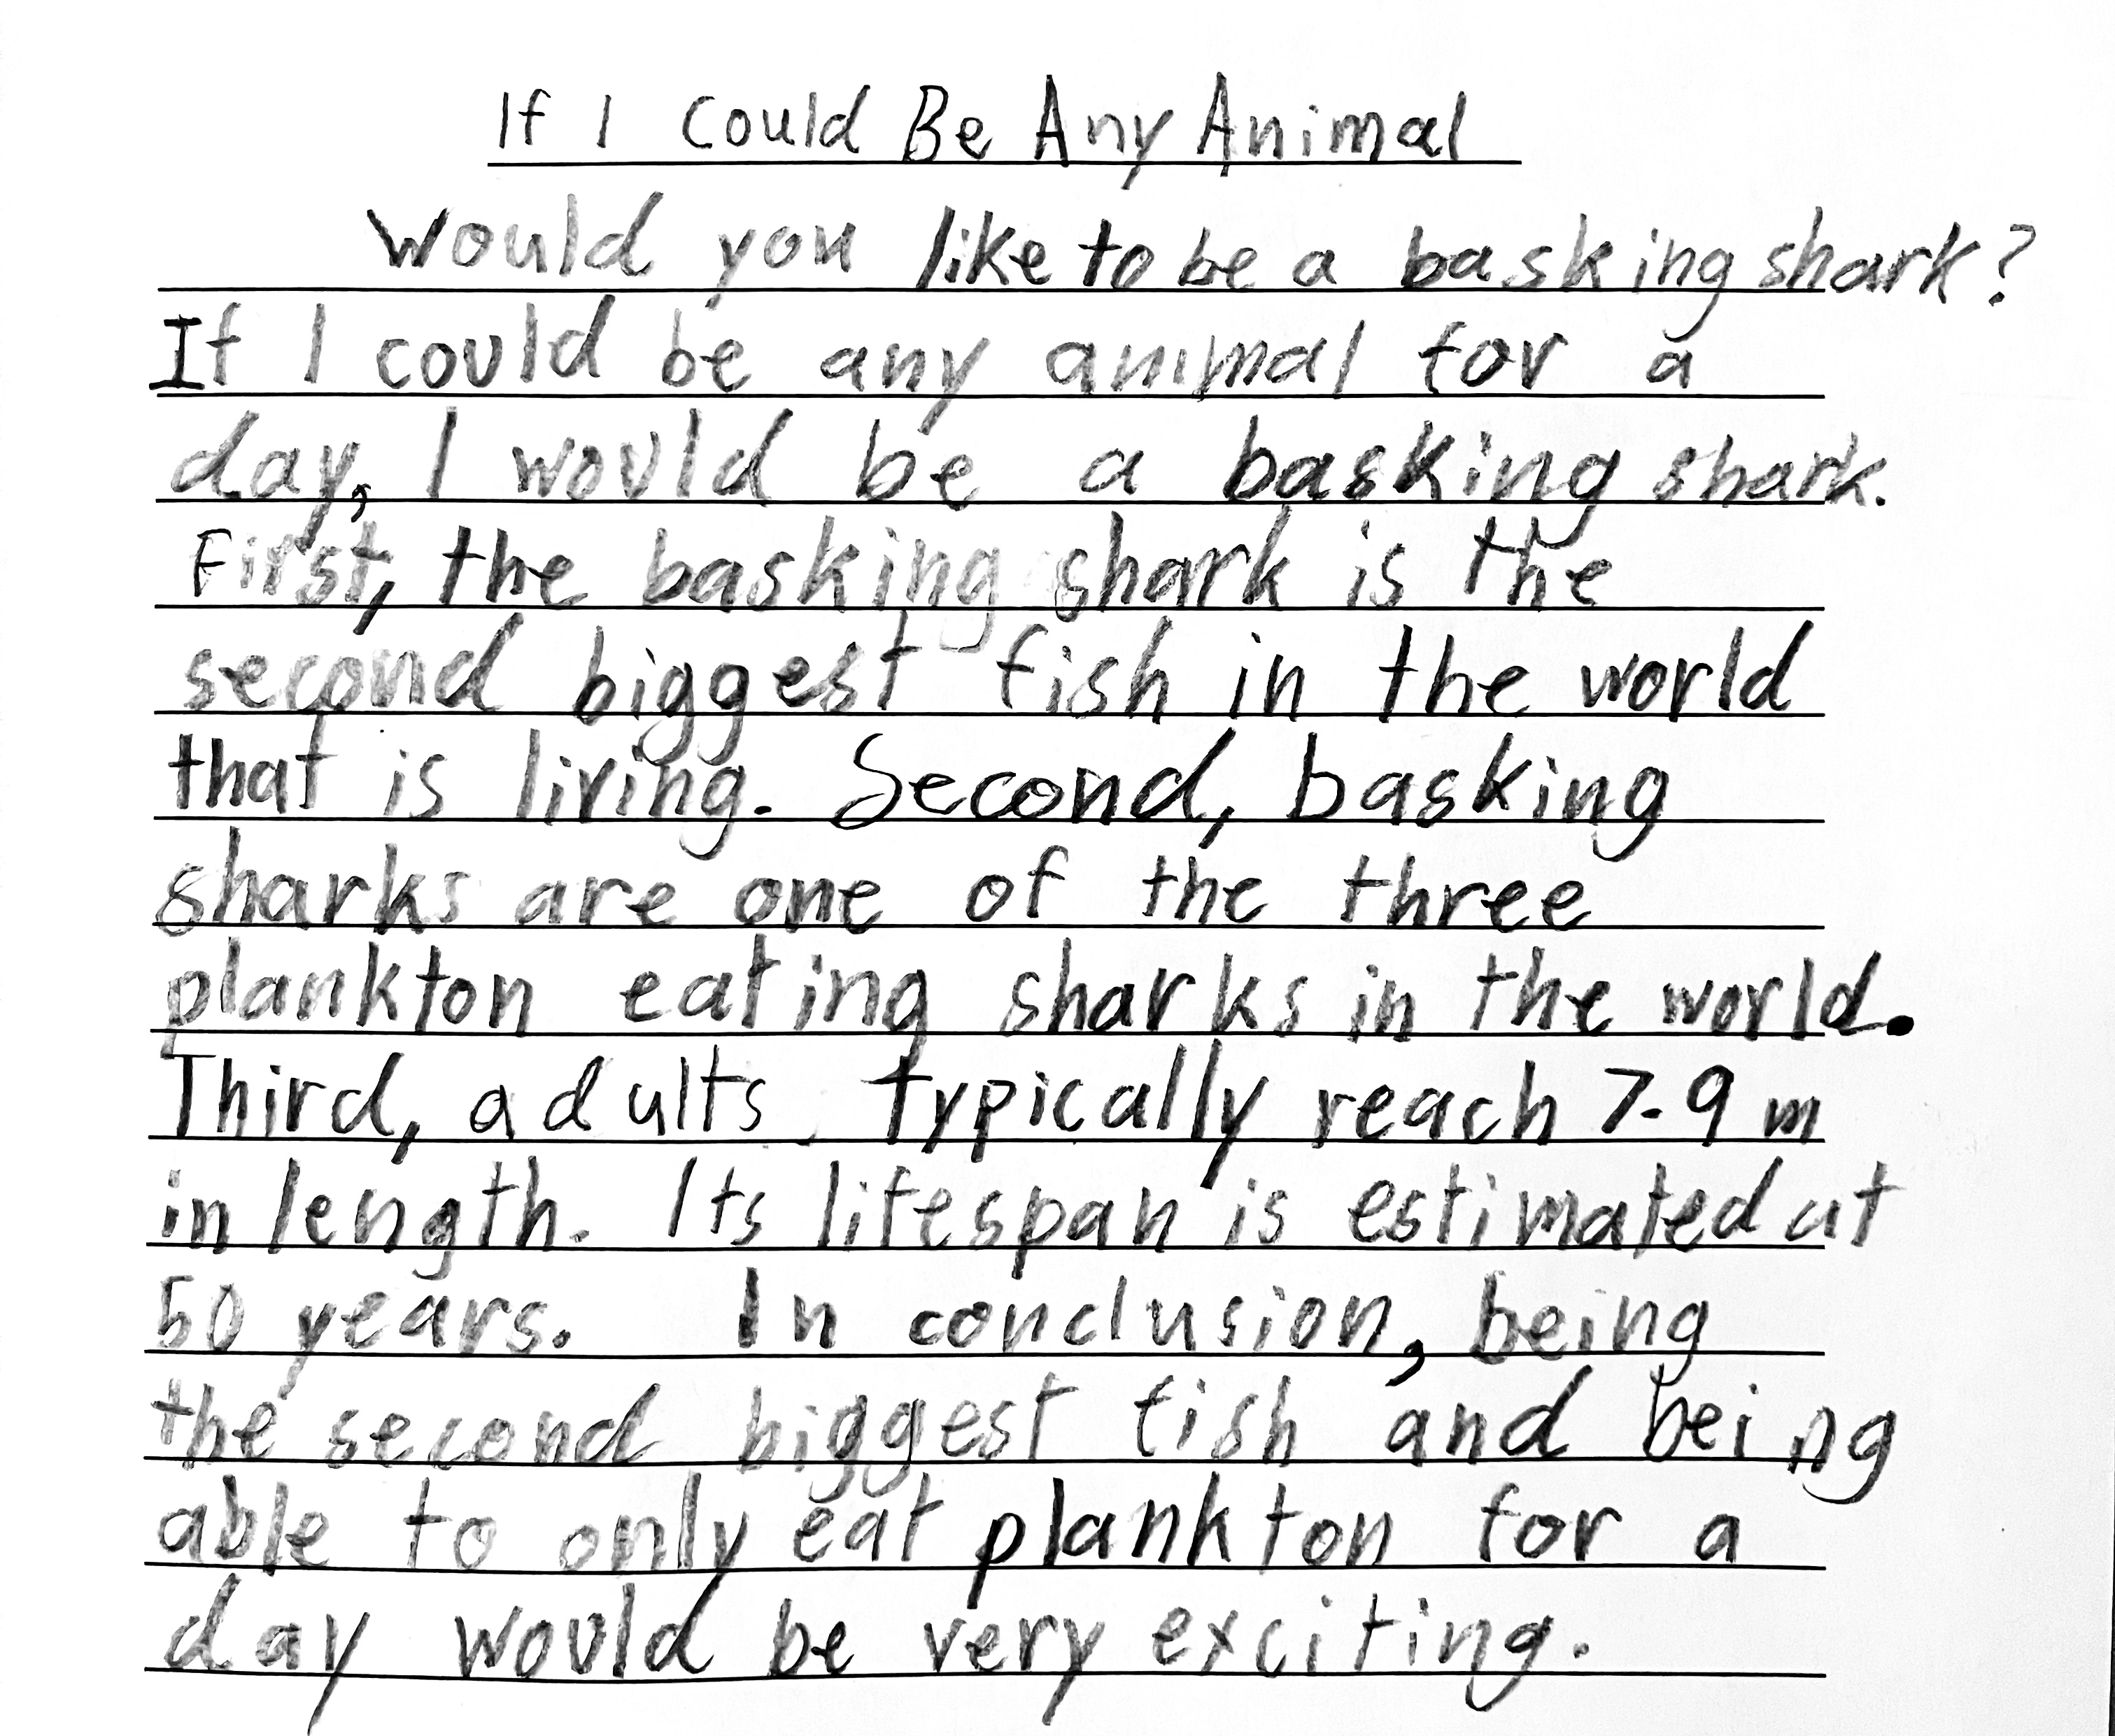 If I Could Be Any Animal
Would you like to be a basking shark?
If I could be any animal for a
day, I would be a basking shark.
First, the basking shark is the
second biggest fish in the world
that is living. Second, basking
sharks are one of the three
plankton eating sharks in the world.
Third, adults typically reach 7-9 m
in length. Its lifespan is estimated at
50 years. In conclusion, being
the second biggest fish and being
able to only eat plankton for a
day would be very exciting.